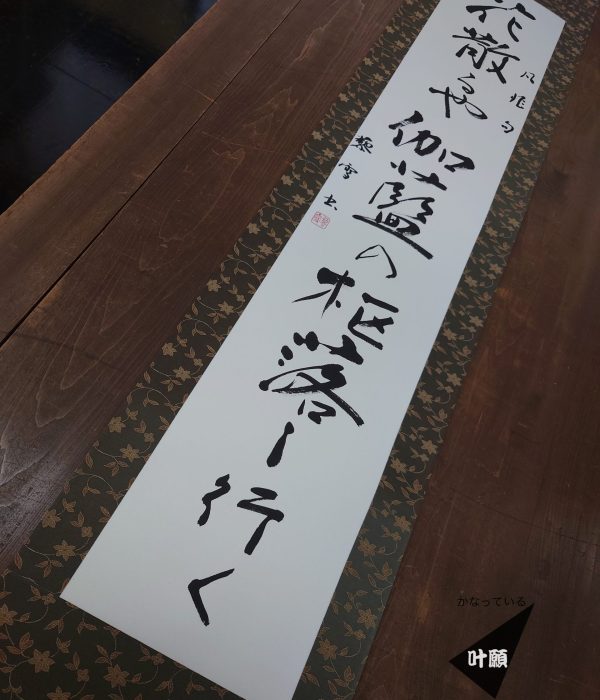 花散るや伽藍の枢落し行く
凡兆句
雪書
かなっている
叶願